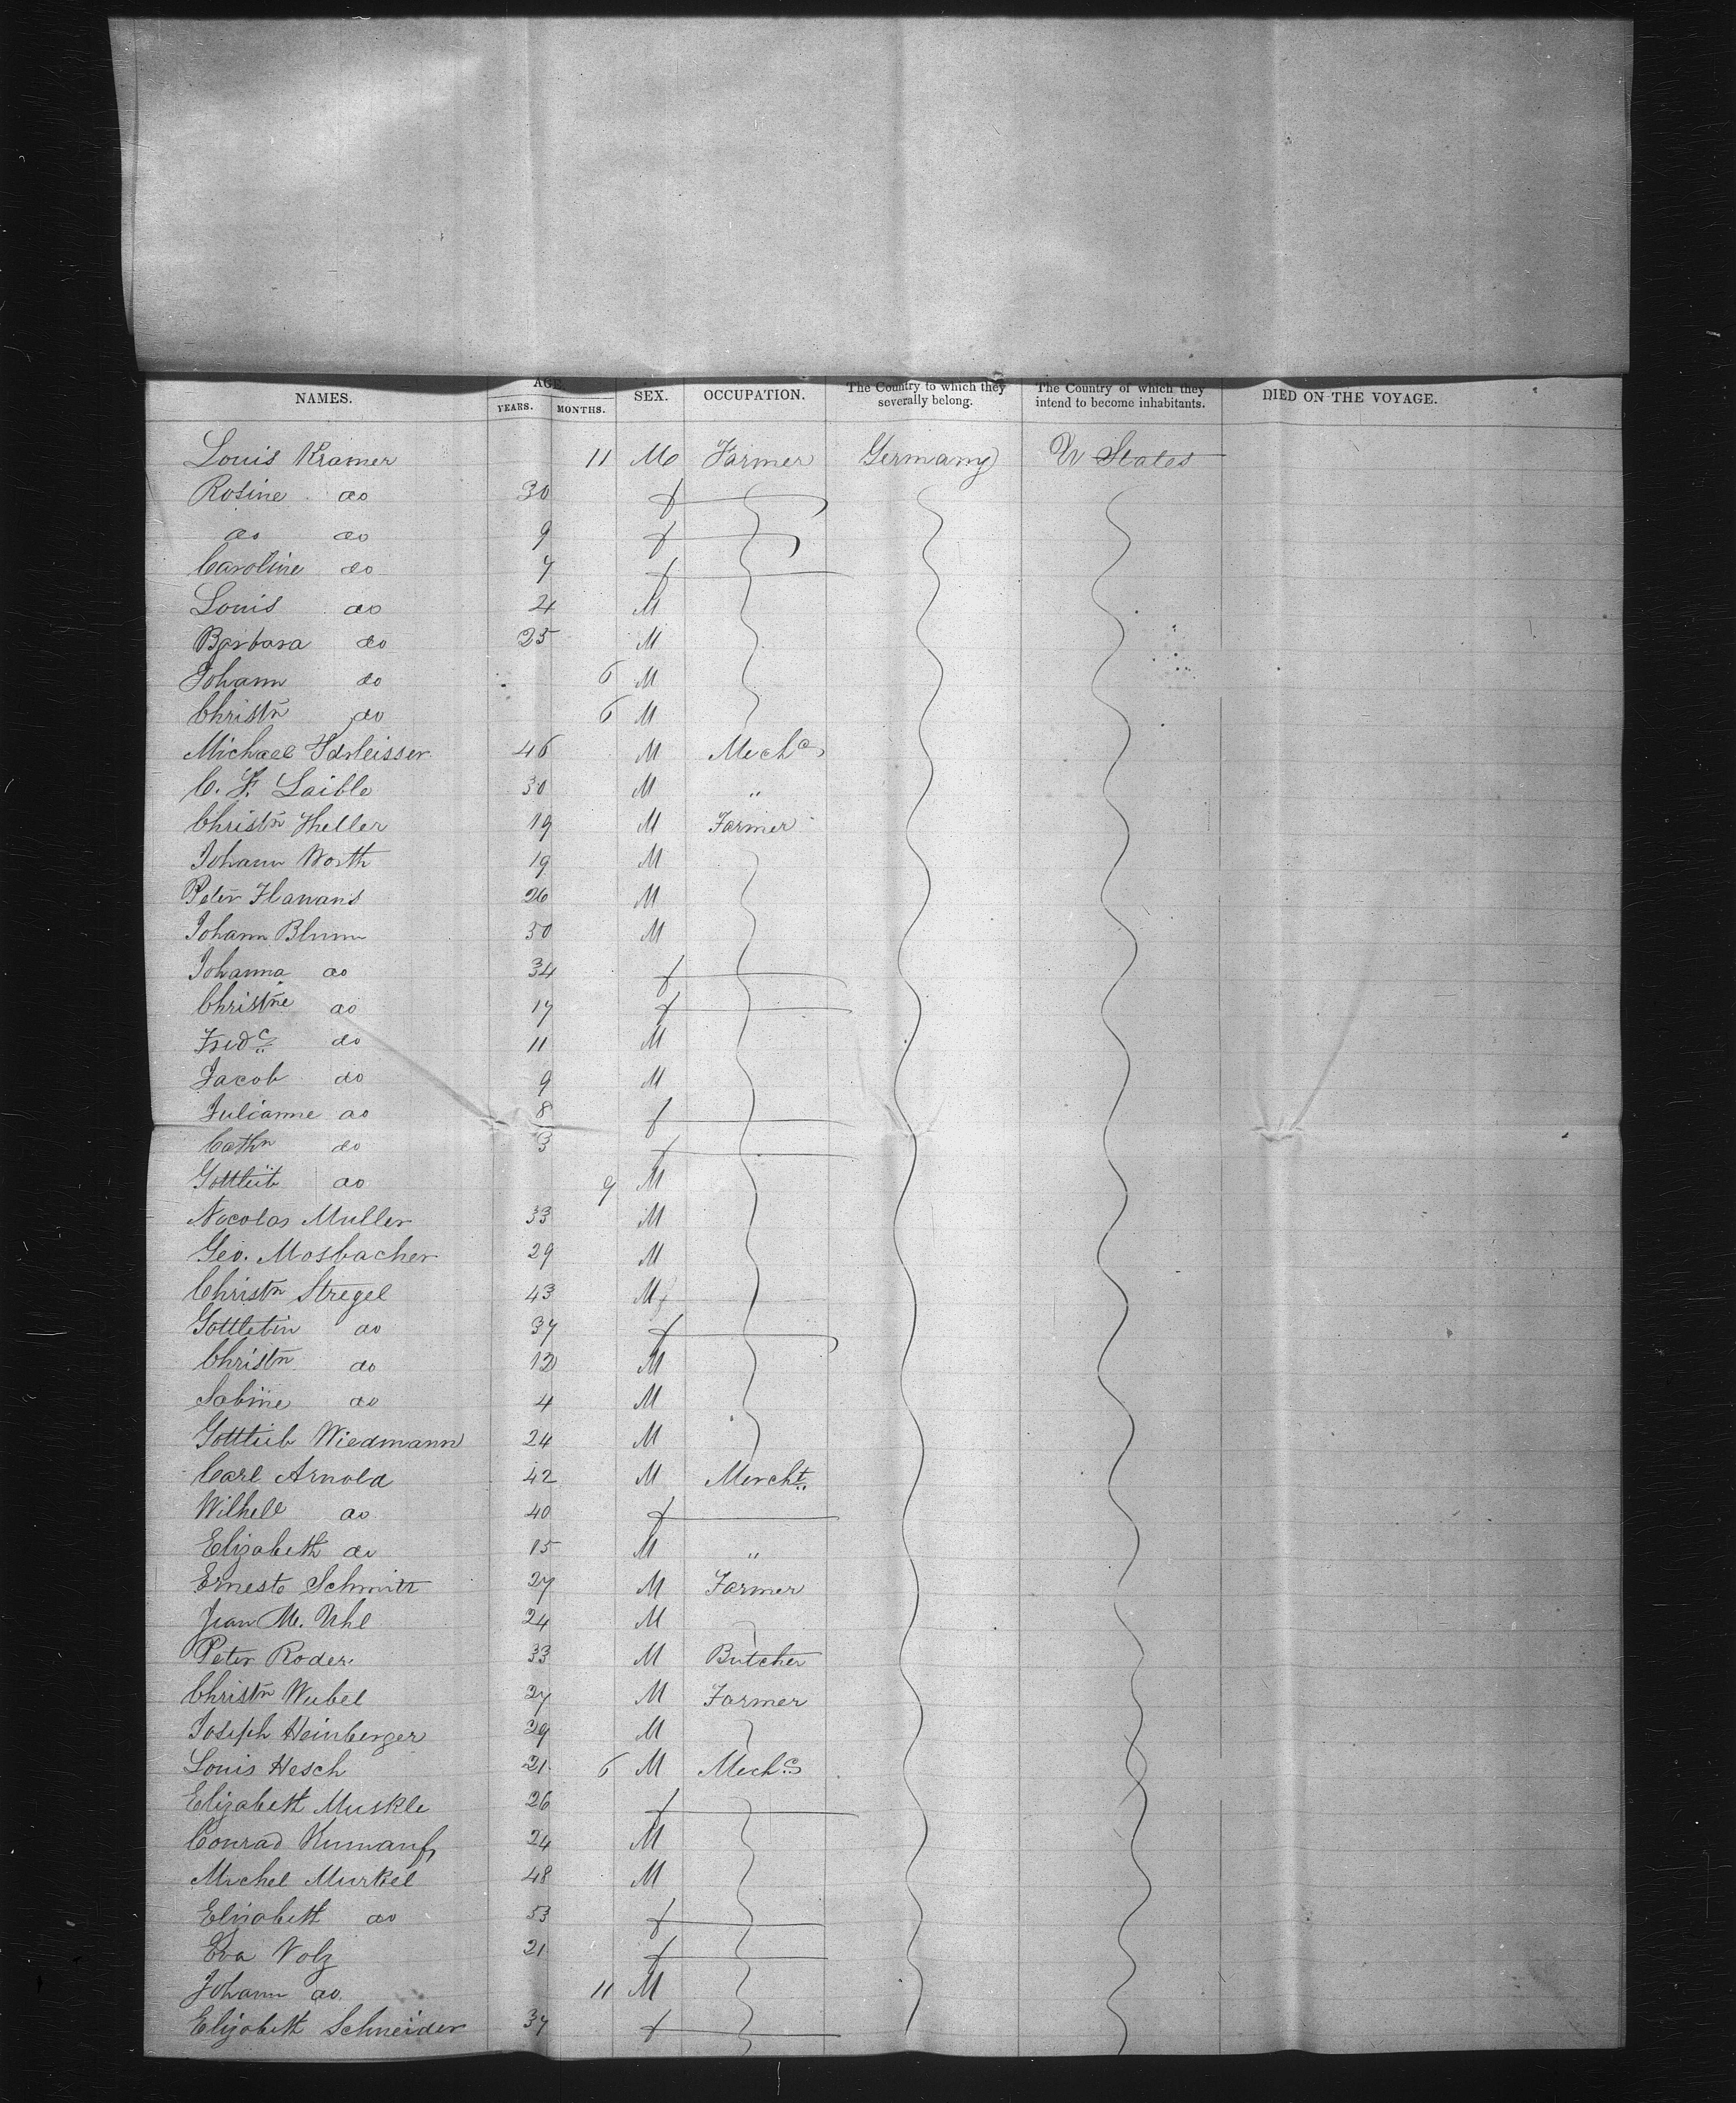 NAMES. AGE. SEX. OCCUPATION. The Country to which they severally belong. The Country of which they intend to become inhabitants. DIED ON THE VOYAGE.
YEARS. MONTHS.
Louis Kramer 11 M Farmer Germany U States
Rosine do 30 f
do do 9 f
Caroline do 7 f
Louis do 4 M
Barbara do 25 M
Johann do 6 M
Christn do 6 M
Michael 46 M Mech
C. F. Laible 30 M "
Christn Heller 19 M Farmer
Johann Worth 19 M
Peter Hanans 26 M
Johann Blum 50 M
Johanna do 34 f
Christne do 17 f
Fredc do 11 M
Jacob do 9 M
Julianne do 8 f
Cathn do 3 f
Gottleib do 9 M
Nocolas Muller 33 M
Geo. Mosbacher 29 M
Christn Stregel 43 M
Gottlebin do 37 f
Christn do 12 M
Sabine do 4 M
Gottleib Wiedmann 24 M
Carl Arnold 42 M Mercht
Wilhell do 40 f
Elizabeth do 15 M "
Ernest Schmitt 27 M Farmer
Jean M. Uhl 24 M
Peter Roder 33 M Butcher
Christn Weibel 27 M Farmer
Joseph Heinberger 29 M
Louis Hesch 21 6 M Mechc
Elizabeth Muskle 26 f
Conrad 24 M
Michel Murkel 48 M
Elizabeth do 53 f
Eva Volz 21 f
Johann do 11 M
Elizabeth Schneider 37 f